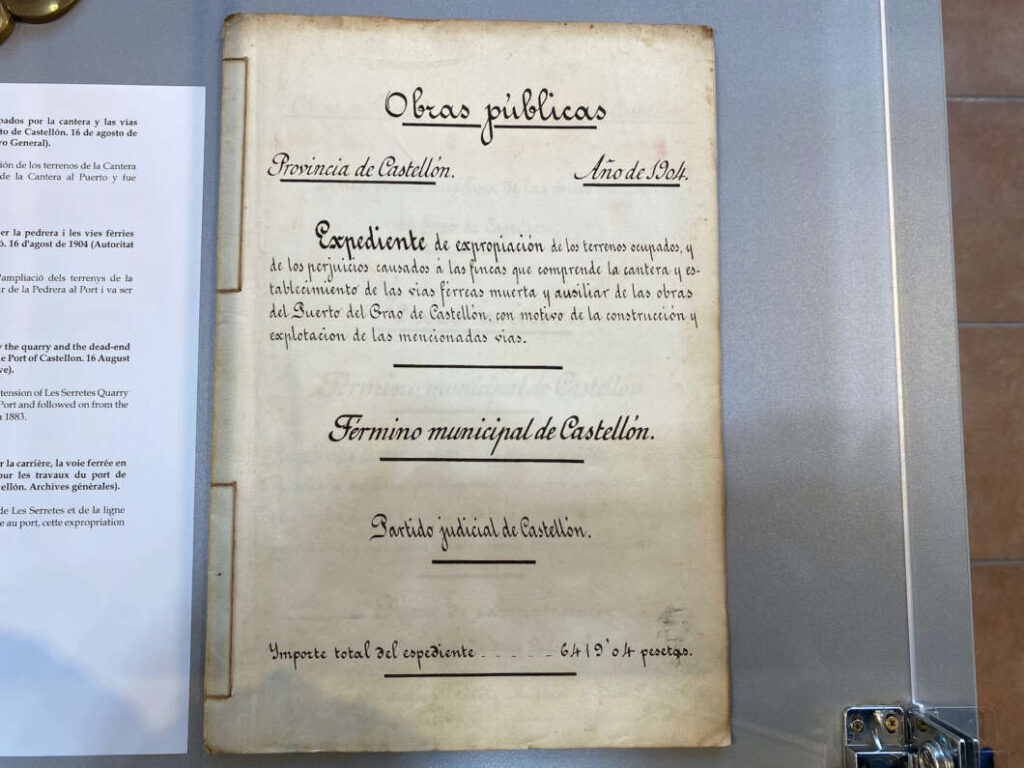 pados por la cantera y las vías
to de Castellón. 16 de agosto de
o General).
ión de los terrenos de la Cantera
de la Cantera al Puerto y fue
er la pedrera i les vies fèrries
ó. 16 d'agost de 1904 (Autoritat
'ampliació dels terrenys de la
r de la Pedrera al Port i va ser
y the quarry and the dead-end
e Port of Castellon. 16 August
ve).
tension of Les Serretes Quarry
Port and followed on from the
n 1883.
r la carrière, la voie ferrée en
our les travaux du port de
ellón. Archives générales).
de Les Serretes et de la ligne
e au port, cette expropriation
Obras públicas
Provincia de Castellón. Año de 1904.
Expediente de expropiación de los terrenos ocupados, y
de los perjuicios causados á las fincas que comprende la cantera y es-
tablecimiento de las vias férreas muerta y ausiliar de las obras
del Puerto del Grao de Castellón, con motivo de la construcción y
explotacion de las mencionadas vias.
Término municipal de Castellón.
Partido judicial de Castellón.
Ymporte total del espediente _ _ _ _ _ 6419'04 pesetas.